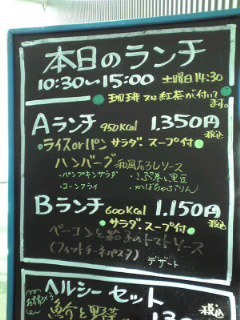 本日のランチ
10:30~15:00 土曜日14:30
珈琲又は紅茶が付いて
ます。
Aランチ 950Kcal 1,350円
税込
●ライスorパン サラダ スープ付●
ハンバーグ 和風おろしソース
・パンプキンサラダ ・ひじき
・コーンフライ ・かぼちゃぷりん
Bランチ 600Kcal 1,150円
税込
●サラダ スープ付●
ベーコンと茄子のトマトソース
(フィットチーネパスタ)
デザート
ヘルシーセット
魚と野菜